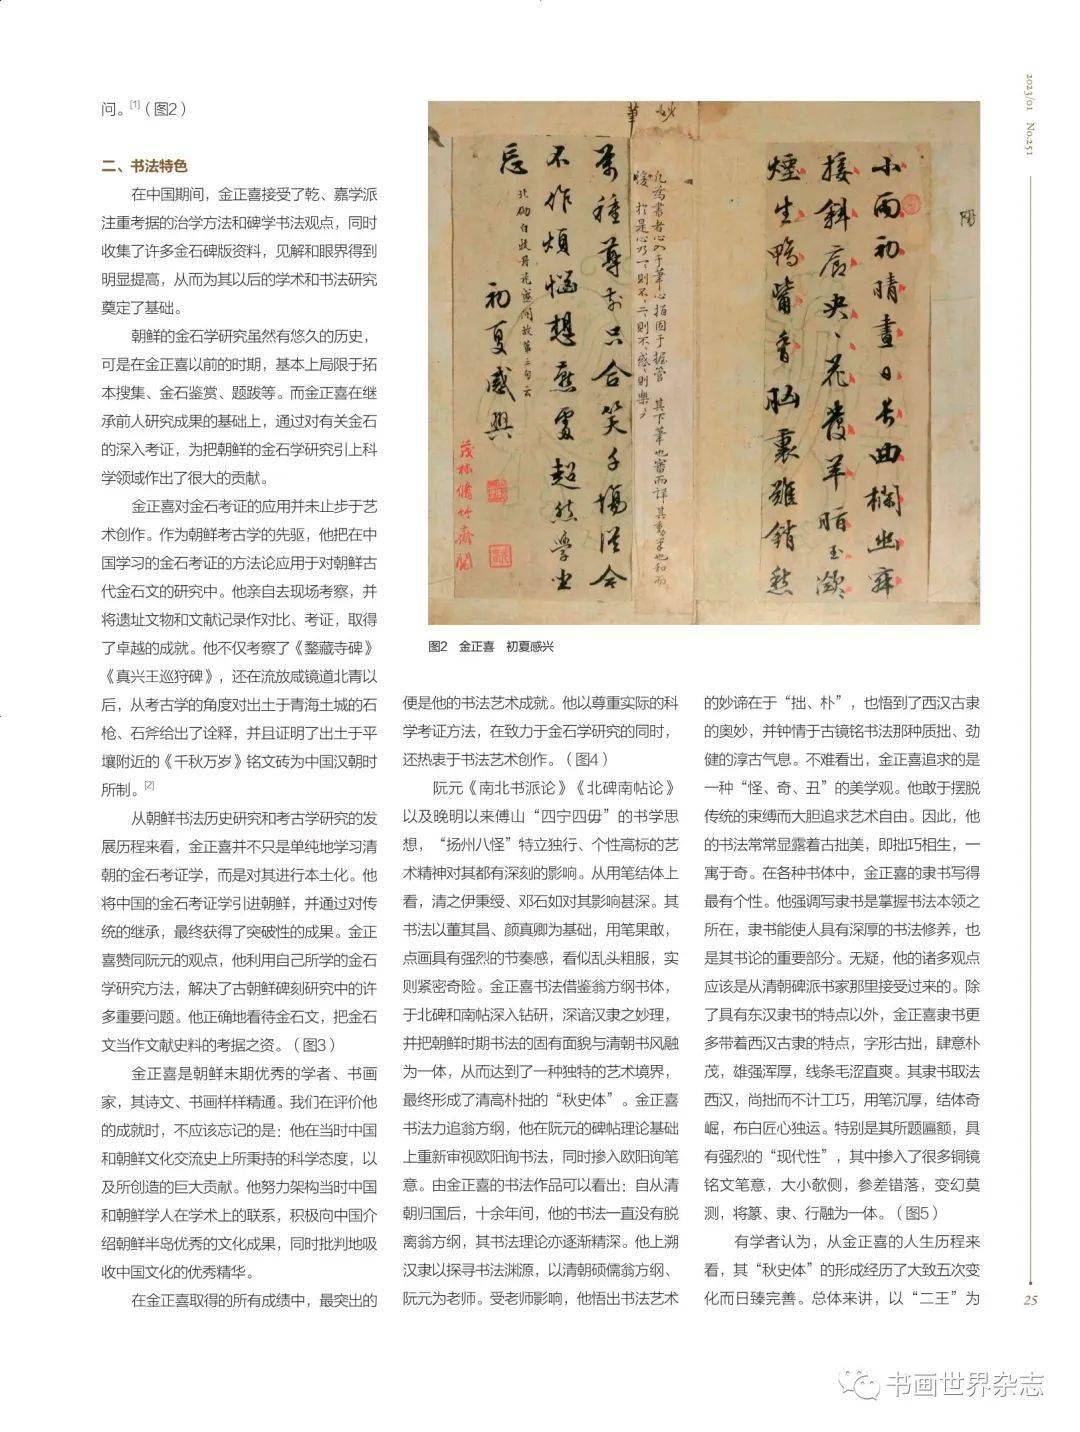 2023/01 No.251
问。[1]（图2）
二、书法特色
在中国期间，金正喜接受了乾、嘉学派
注重考据的治学方法和碑学书法观点，同时
收集了许多金石碑版资料，见解和眼界得到
明显提高，从而为其以后的学术和书法研究
奠定了基础。
朝鲜的金石学研究虽然有悠久的历史，
可是在金正喜以前的时期，基本上局限于拓
本搜集、金石鉴赏、题跋等。而金正喜在继
承前人研究成果的基础上，通过对有关金石
的深入考证，为把朝鲜的金石学研究引上科
学领域作出了很大的贡献。
金正喜对金石考证的应用并未止步于艺
术创作。作为朝鲜考古学的先驱，他把在中
国学习的金石考证的方法论应用于对朝鲜古
代金石文的研究中。他亲自去现场考察，并
将遗址文物和文献记录作对比、考证，取得
了卓越的成就。他不仅考察了《鍪藏寺碑》
《真兴王巡狩碑》，还在流放咸镜道北青以
后，从考古学的角度对出土于青海土城的石
枪、石斧给出了诠释，并且证明了出土于平
壤附近的《千秋万岁》铭文砖为中国汉朝时
所制。[2]
从朝鲜书法历史研究和考古学研究的发
展历程来看，金正喜并不只是单纯地学习清
朝的金石考证学，而是对其进行本土化。他
将中国的金石考证学引进朝鲜，并通过对传
统的继承，最终获得了突破性的成果。金正
喜赞同阮元的观点，他利用自己所学的金石
学研究方法，解决了古朝鲜碑刻研究中的许
多重要问题。他正确地看待金石文，把金石
文当作文献史料的考据之资。（图3）
金正喜是朝鲜末期优秀的学者、书画
家，其诗文、书画样样精通。我们在评价他
的成就时，不应该忘记的是：他在当时中国
和朝鲜文化交流史上所秉持的科学态度，以
及所创造的巨大贡献。他努力架构当时中国
和朝鲜学人在学术上的联系，积极向中国介
绍朝鲜半岛优秀的文化成果，同时批判地吸
收中国文化的优秀精华。
在金正喜取得的所有成绩中，最突出的
小雨初晴昼日长曲栏幽寂
接斜廊央、花发羊脂玉凝
烟生鸭嘴香胸里虽销愁
妙
华
凡为书者心入于笔心指固于握管 其下笔也审而详其
万种尊前只合笑千场从今
不作烦恼想应处超然学坐
忘
初夏感兴
茂林修竹斋
图2 金正喜 初夏感兴
便是他的书法艺术成就。他以尊重实际的科
学考证方法，在致力于金石学研究的同时，
还热衷于书法艺术创作。（图4）
阮元《南北书派论》《北碑南帖论》
以及晚明以来傅山“四宁四毋”的书学思
想，“扬州八怪”特立独行、个性高标的艺
术精神对其都有深刻的影响。从用笔结体上
看，清之伊秉绶、邓石如对其影响甚深。其
书法以董其昌、颜真卿为基础，用笔果敢，
点画具有强烈的节奏感，看似乱头粗服，实
则紧密奇险。金正喜书法借鉴翁方纲书体，
于北碑和南帖深入钻研，深谙汉隶之妙理，
并把朝鲜时期书法的固有面貌与清朝书风融
为一体，从而达到了一种独特的艺术境界，
最终形成了清高朴拙的“秋史体”。金正喜
书法力追翁方纲，他在阮元的碑帖理论基础
上重新审视欧阳询书法，同时掺入欧阳询笔
意。由金正喜的书法作品可以看出：自从清
朝归国后，十余年间，他的书法一直没有脱
离翁方纲，其书法理论亦逐渐精深。他上溯
汉隶以探寻书法渊源，以清朝硕儒翁方纲、
阮元为老师。受老师影响，他悟出书法艺术
的妙谛在于“拙、朴”，也悟到了西汉古隶
的奥妙，并钟情于古镜铭书法那种质拙、劲
健的淳古气息。不难看出，金正喜追求的是
一种“怪、奇、丑”的美学观。他敢于摆脱
传统的束缚而大胆追求艺术自由。因此，他
的书法常常显露着古拙美，即拙巧相生，一
寓于奇。在各种书体中，金正喜的隶书写得
最有个性。他强调写隶书是掌握书法本领之
所在，隶书能使人具有深厚的书法修养，也
是其书论的重要部分。无疑，他的诸多观点
应该是从清朝碑派书家那里接受过来的。除
了具有东汉隶书的特点以外，金正喜隶书更
多带着西汉古隶的特点，字形古拙，肆意朴
茂，雄强浑厚，线条毛涩直爽。其隶书取法
西汉，尚拙而不计工巧，用笔沉厚，结体奇
崛，布白匠心独运。特别是其所题匾额，具
有强烈的“现代性”，其中掺入了很多铜镜
铭文笔意，大小欹侧，参差错落，变幻莫
测，将篆、隶、行融为一体。（图5）
有学者认为，从金正喜的人生历程来
看，其“秋史体”的形成经历了大致五次变
化而日臻完善。总体来讲，以“二王”为
25
书画世界杂志